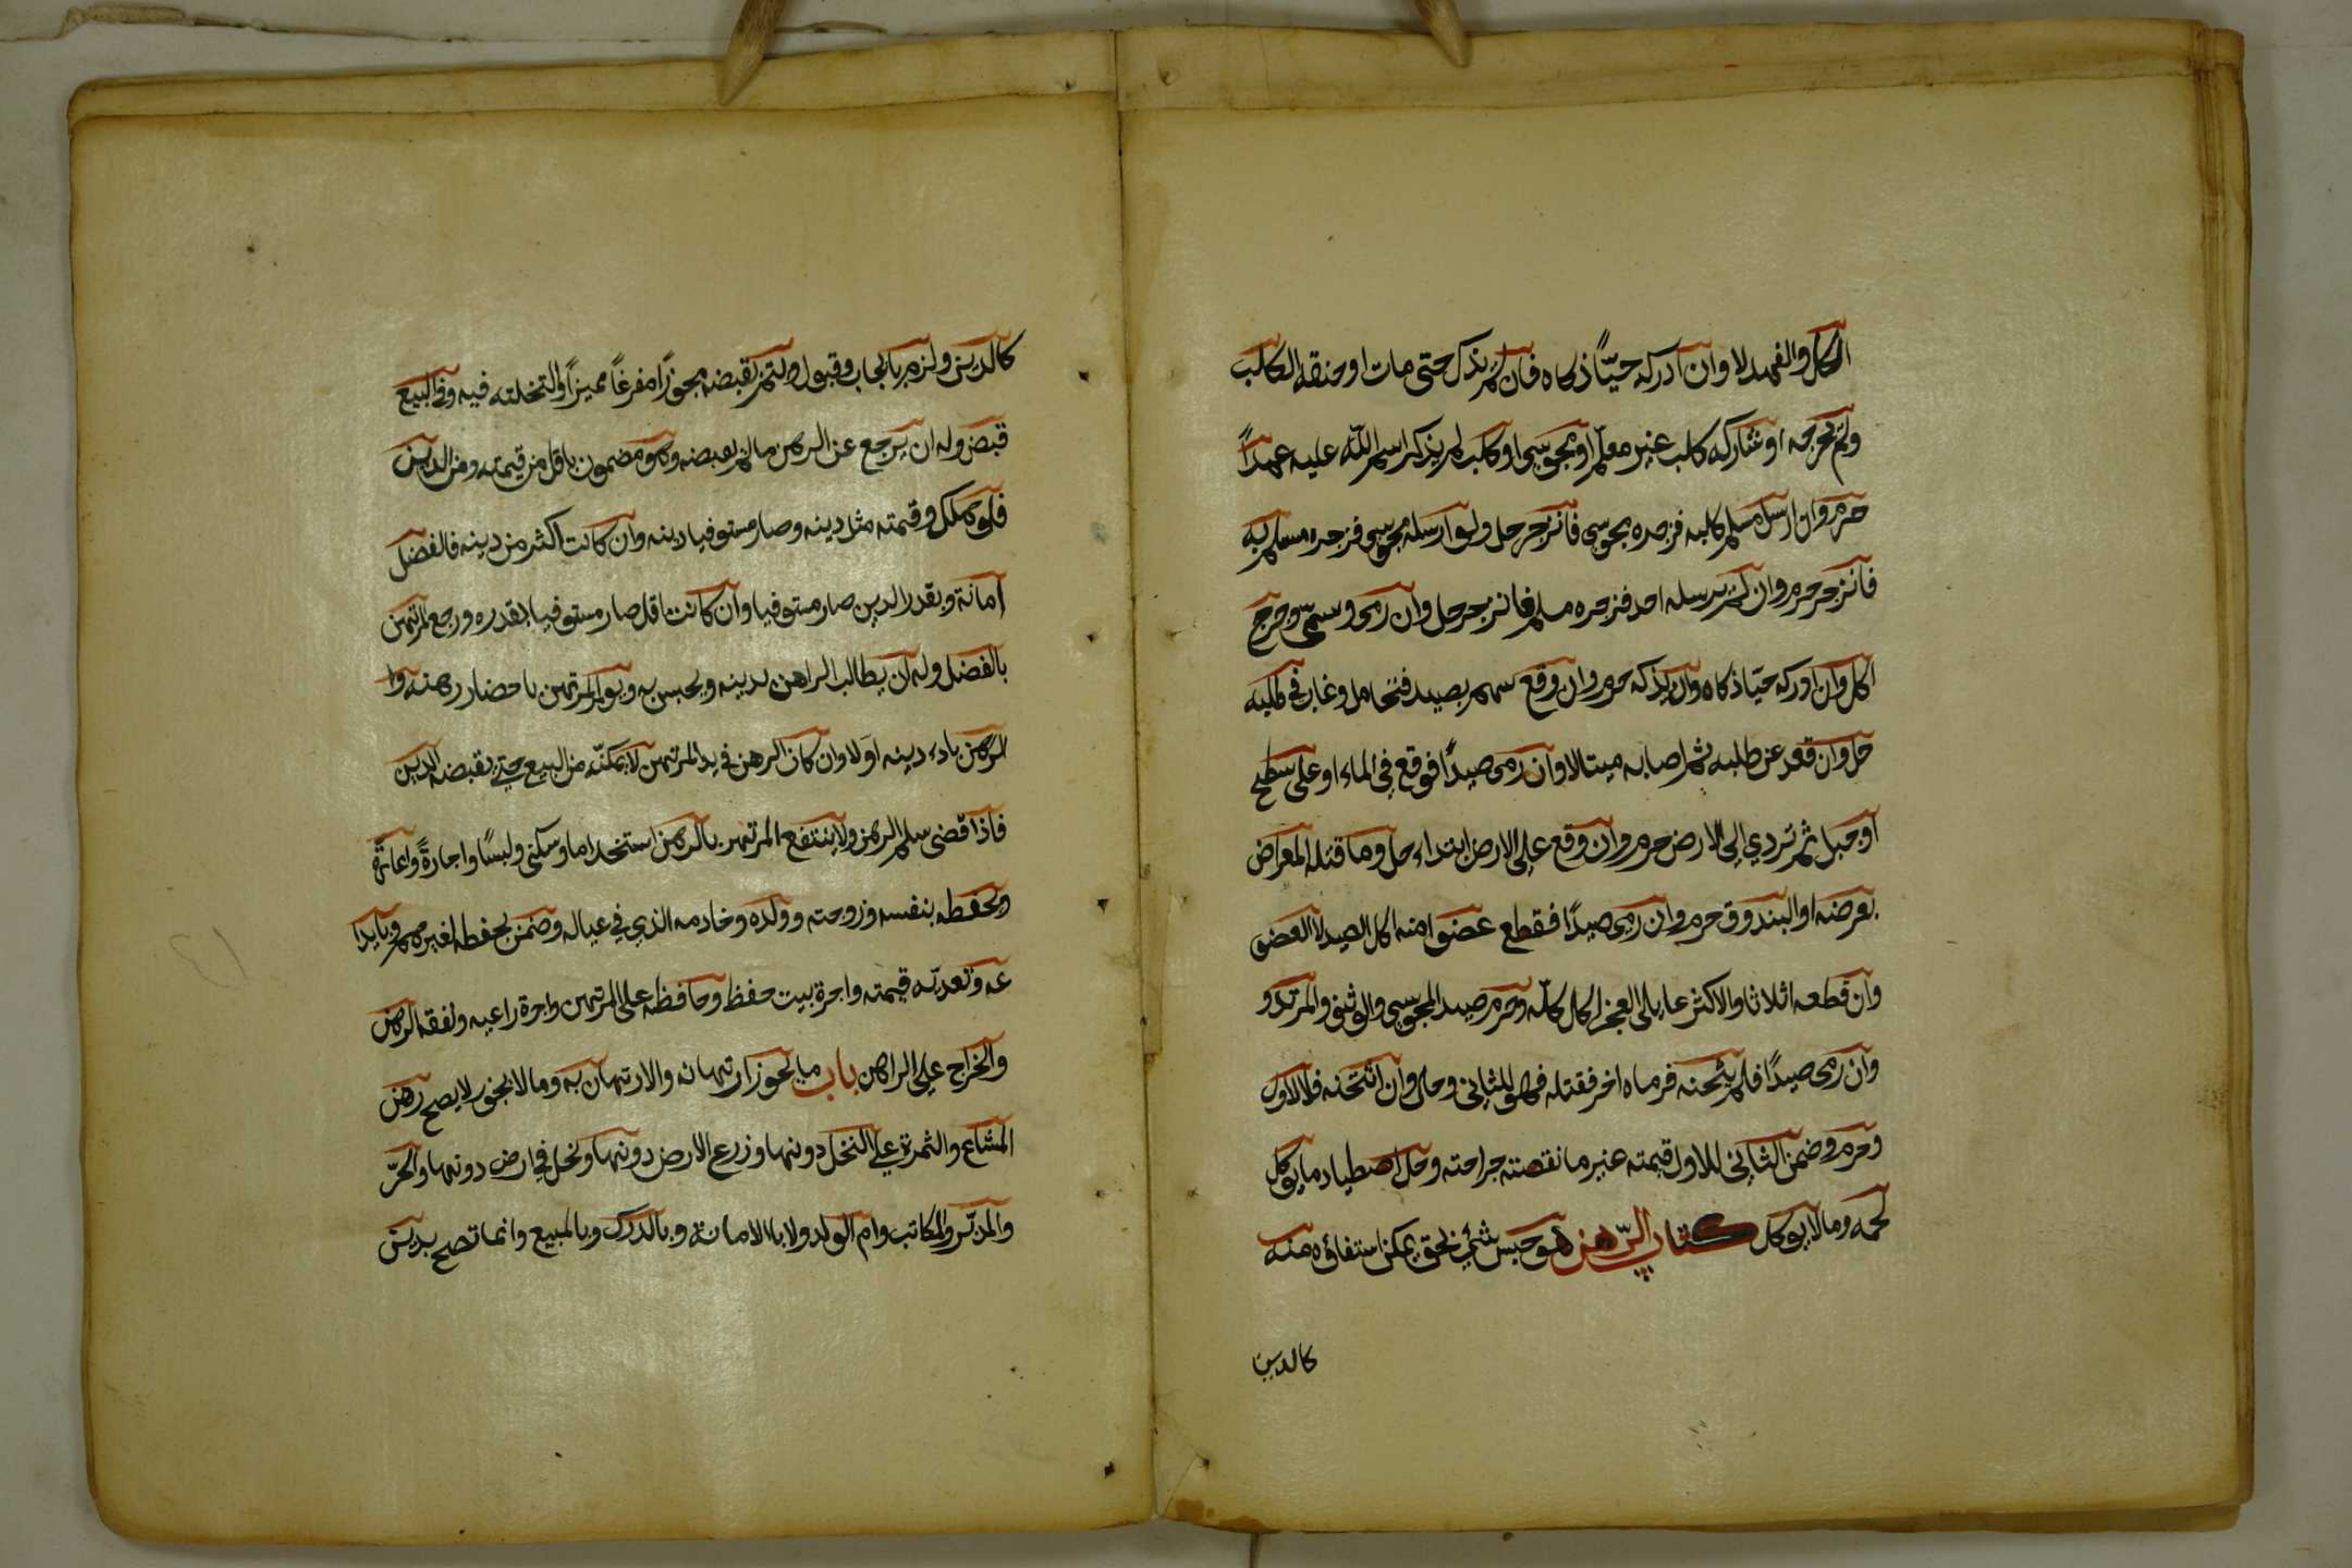 اكل والفهد لا وان ادركه حيّاً ذكاه فان لم يذكه حتى مات او خنقه الكلب
ولم يجرحه او شاركه كلب غير معلّم او مجوسي او كلب لم يذكر اسم اللّه عليه عمداً
حرم وان ارسل مسلم كلبه فزجره مجوسي فانزجر حل ولو ارسله مجوسي فزجره مسلم
فانزجر حرم وان لم يرسله احد فزجره مسلم فانزجر حل وان رمى وسمى وجرح
اكل وان ادركه حيّا ذكاه وان لم يذكه حرم وان وقع سهم بصيد فتحامل وغاب في طلبه
حل وان قعد عن طلبه ثم اصابه ميتا لا وان رمى صيداً فوقع في الماء او على سطح
او جبل ثم تردي الى الارض حرم وان وقع على الارض ابتداء حل وما قتله المعراض
بعرضه او البندوق حرم وان رمى صيدًا فقطع عضوا منه اكل الصيد لا العضو
وان قطعه اثلاثا والاكثر مما يلى العجز اكل كلّه وحرم صيد المجوسي والوثني والمرتد و
وان رمى صيدًا فلم يثخنه فرماه اخر فقتله فهو للثاني وحل وان اثخنه فللاول
وحرم وضمن الثاني للاول قيمته غير ما نقصته جراحته وحل اصطياد ما يوكل
لحمه وما لا يوكل كتاب الرّهن هو حبس شئ بحق يمكن استفاؤه منه
كالدين
كالدين ولزم بايجاب وقبول ويتم بقبضه محوزًا مفرغاً مميزاً والتخلته فيه وفي البيع
قبض وله ان يرجع عن الرهن مالم يقبضه وهو مضمون باقل من قيمته ومن الدين
فلو هلك وقيمته مثل دينه وصار مستوفيا دينه وان كانت اكثر من دينه فالفضل
امانة وبقدر الدين صار مستوفيا وان كانت اقل صار مستوفيا بقدره ورجع المرتهن
بالفضل وله ان يطالب الراهن بدينه ويحبس به ويومر المرتهن باحضار رهنه وا
الرهن باداء دينه اولا وان كان الرهن في يد المرتهن لا يمكنّه من البيع حتى يقبضه الدين
فاذا قضى سلم الرهن ولا ينتفع المرتهن بالرهن استخداما وسكنى ولبسًا واجارةً واعارةً
ويحفظه بنفسه وزوجته وولده وخادمه الذي في عياله وضمن بحفظه لغيرهم وبايدا
عه وتعديّه قيمته واجرة بيت حفظه وحافظه على المرتهن واجرة راعيه ونفقه الرهن
والخراج على الراهن باب ما يجوز ارتهانه والارتهان به وما لا يجوز لا يصح رهن
المشاع والثمرة على النخل دونها وزرع الارض دونها ونخل في ارض دونها والحرّ
والمدبّر والمكاتب وام الولد ولا بالامانة وبالدرك وبالمبيع وانما تصح بدين